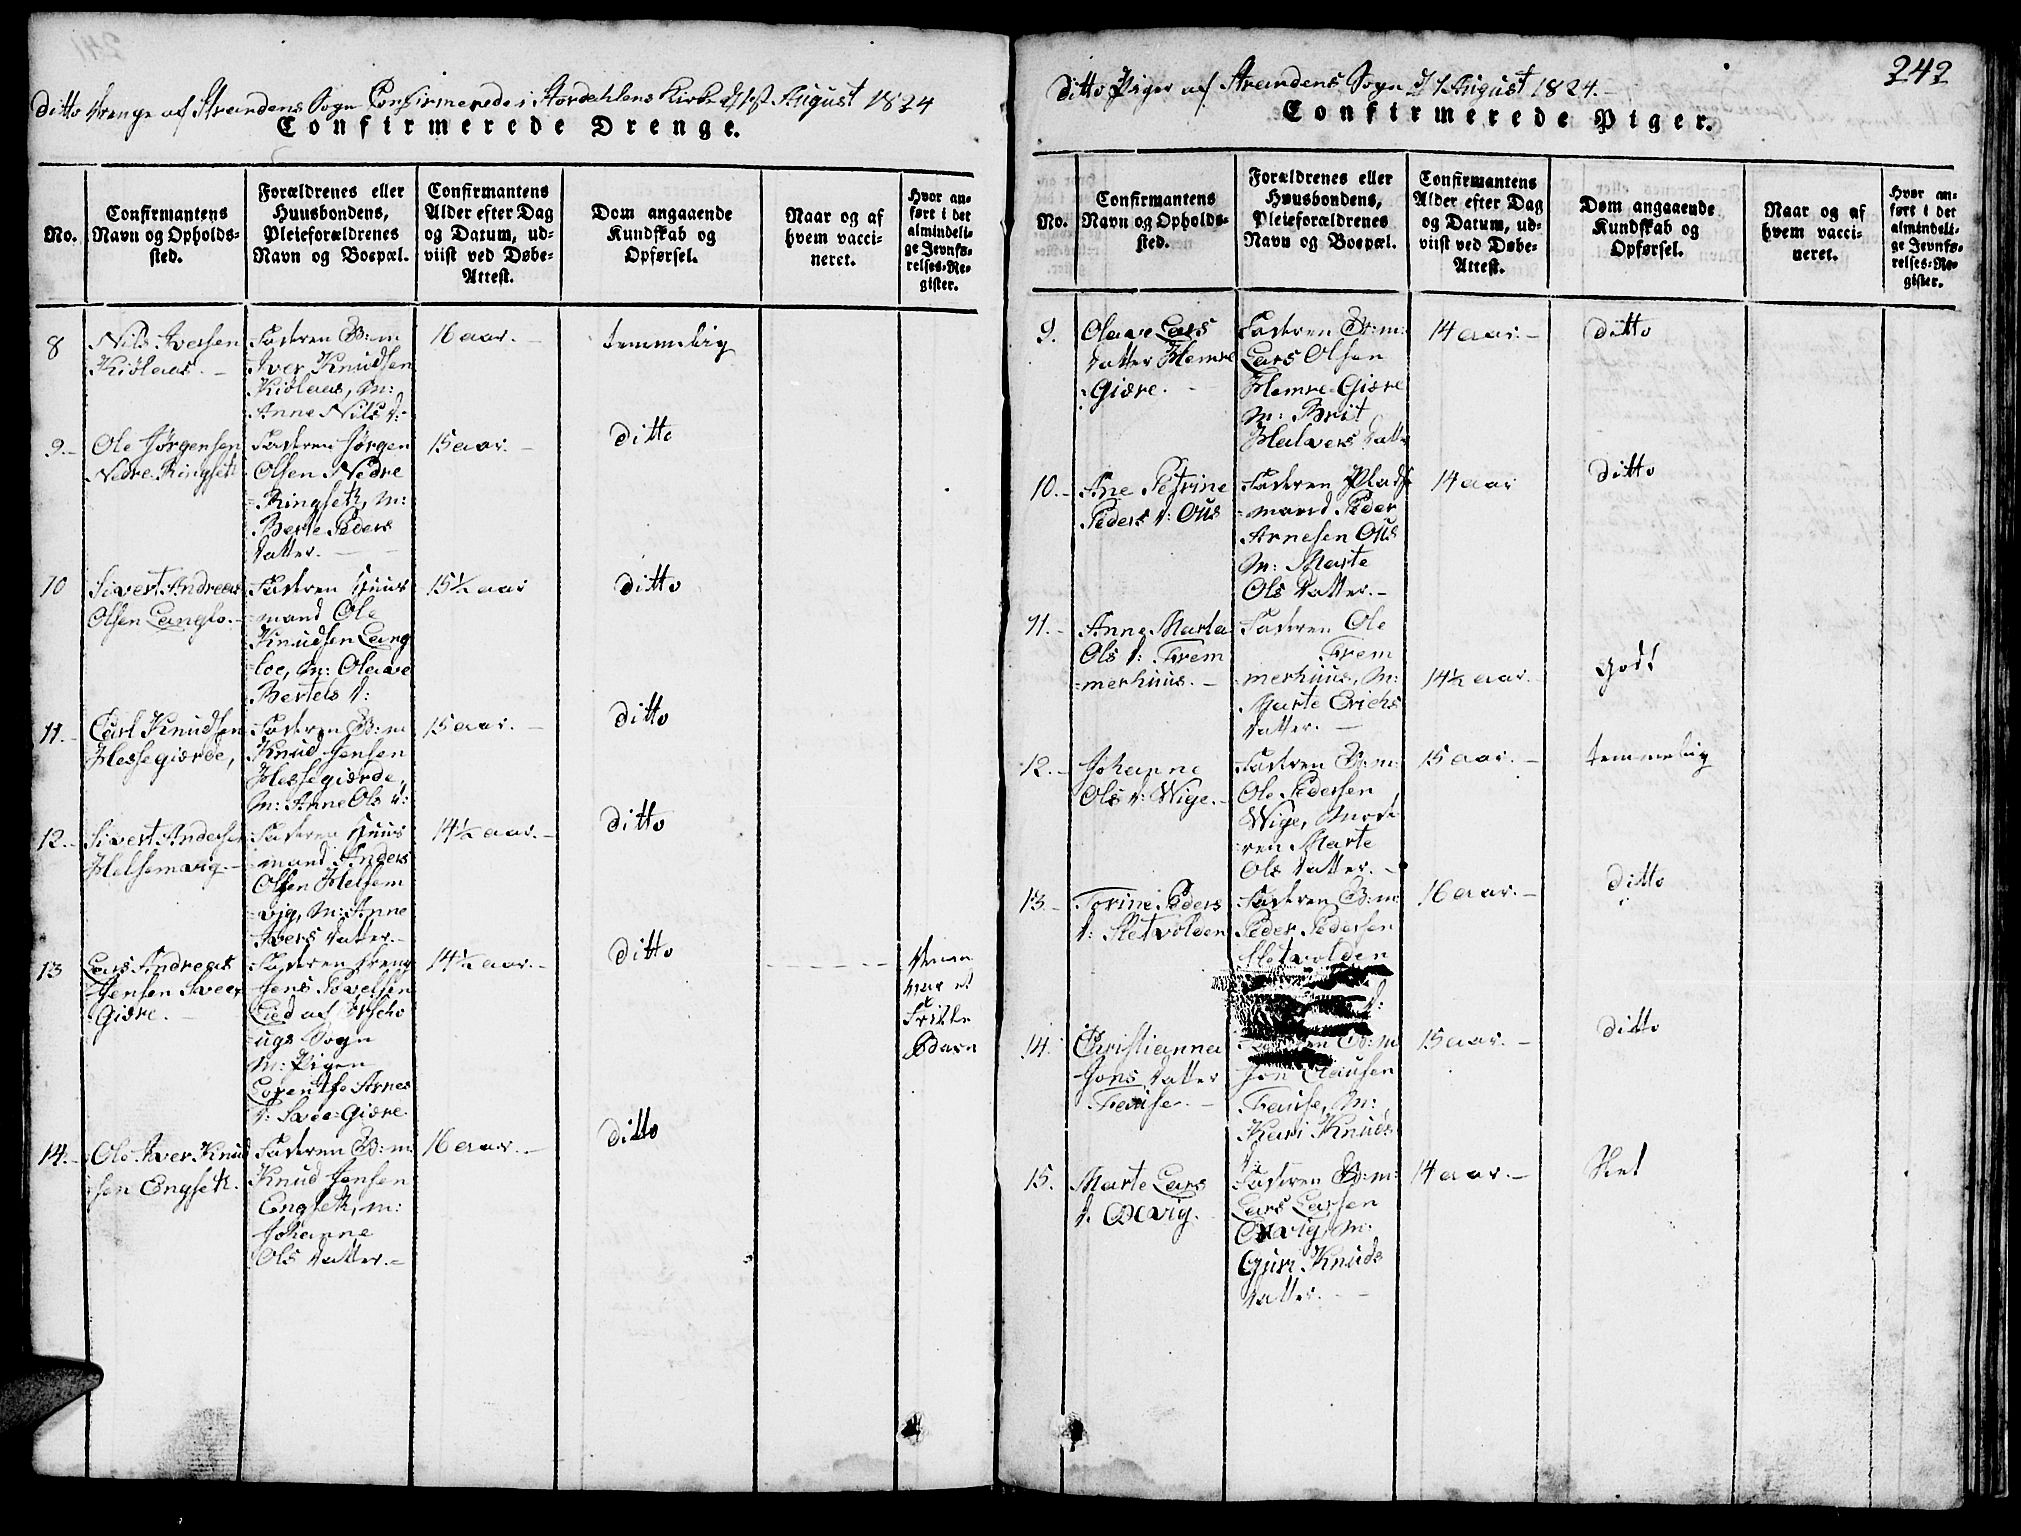 242
ditto Drenge af Strandens Sogn Confirmerede i Stordahlens Kirke August 1824
Confirmerede Drenge.
No.
Confirmantens
Navn og Opholds-
sted.
Forældrenes eller
Huusbondens,
Pleieforældrenes
Navn og Boepæl.
Confirmantens
Alder efter Dag
og Datum, ud-
viist ved Døbe-
Attest.
Dom angaaende
Kundskab og
Opførsel.
Naar og af
hvem vacci-
neret.
Hvor an-
ført i det
almindeli-
ge Jevnfø-
relses-Re-
gister.
8
Nils Iversen
Kiølaas.
Faderen B:m.
Iver Knudsen
Kiølaas, M:
Anne Nils d:
16 aar.
temmelig
9.
Ole Jørgensen
Nedre Ringseth
Faderen Jørgen
Olsen Nedre
Ringseth, M:
Berte Peders
datter.
15 aar.
ditto
10
Sivert Andreas
Olsen Langlo.
Faderen Huus
mand Ole
Knudsen Lang
loe, M: Olave
Bertels d:
15½ aar
ditto
11.
Carl Knudsen
Hessegiærde,
Faderen B:m
Knud Jensen
Hessegiærde,
M: Anne Ols d:
15 aar.
ditto
12.
Sivert Andersen
Helsemvig.
Faderen Huus
mand Anders
Olsen Helsem
vig, M: Anne
Ivers datter.
14½ aar.
ditto
13
Lars Andreas
Jensen Svee
Giære.
Faderen Dreng
Jens Povelsen
Lied af Ørscho
ugs Sogn
M: Pigen
Lorentse Arnes
d: Svee Giære
14½ aar.
ditto
14.
Ole Iver Knud
sen Engseth.
Faderen B:m.
Knud Jensen
Engseth, M:
Johanne
Ols datter.
16 aar.
ditto
ditto Piger af Strandens Sogn August 1824.
Confirmerede Piger.
No.
Confirmantens
Navn og Opholds-
sted.
Forældrenes eller
Huusbondens,
Pleieforældrenes
Navn og Boepæl.
Confirmantens
Alder efter Dag
og Datum, ud-
viist ved Døbe-
Attest.
Dom angaaende
Kundskab og
Opførsel.
Naar og af
hvem vacci-
neret.
Hvor an-
ført i det
almindeli-
ge Jevnfø-
relses-Re-
gister.
9.
Olave Lars
datter Hemre
Giære.
Faderen B:m:
Lars Olsen
Hemre Giære
M: Brit
Halvers datt
14 aar.
ditto
10.
Ane Petrine
Peders d: Ous
Faderen Plads
mand Peder
Arnesen Ous
M: Marte
Ols datter.
14 aar
ditto
11.
Anne Marta
Ols d: Frem
merhuus.
Faderen Ole
Frem
merhuus, M:
Marte Erichs
datter.
14½ aar.
Godt
12.
Johanne
Ols d: Wige.
Faderen B:m:
Ole Pedersen
Wige, Mode
ren Marte
Ols datter.
15 aar.
temmelig
13.
Torine Peders
d: Sletvolden
Faderen B:m:
Peder Pedersen
Sletvolden
d:
16 aar.
ditto
14.
Christianna
Jons datter
Fause.
Faderen B:m
Jon Clausen
Fause, M:
Kari Knuds
d:
15 aar.
ditto
15.
Marte Lars
d. Oxvig.
Faderen B:m:
Lars Larsen
Oxvig, M:
Guri Knuds
datter.
14 aar.
Slet